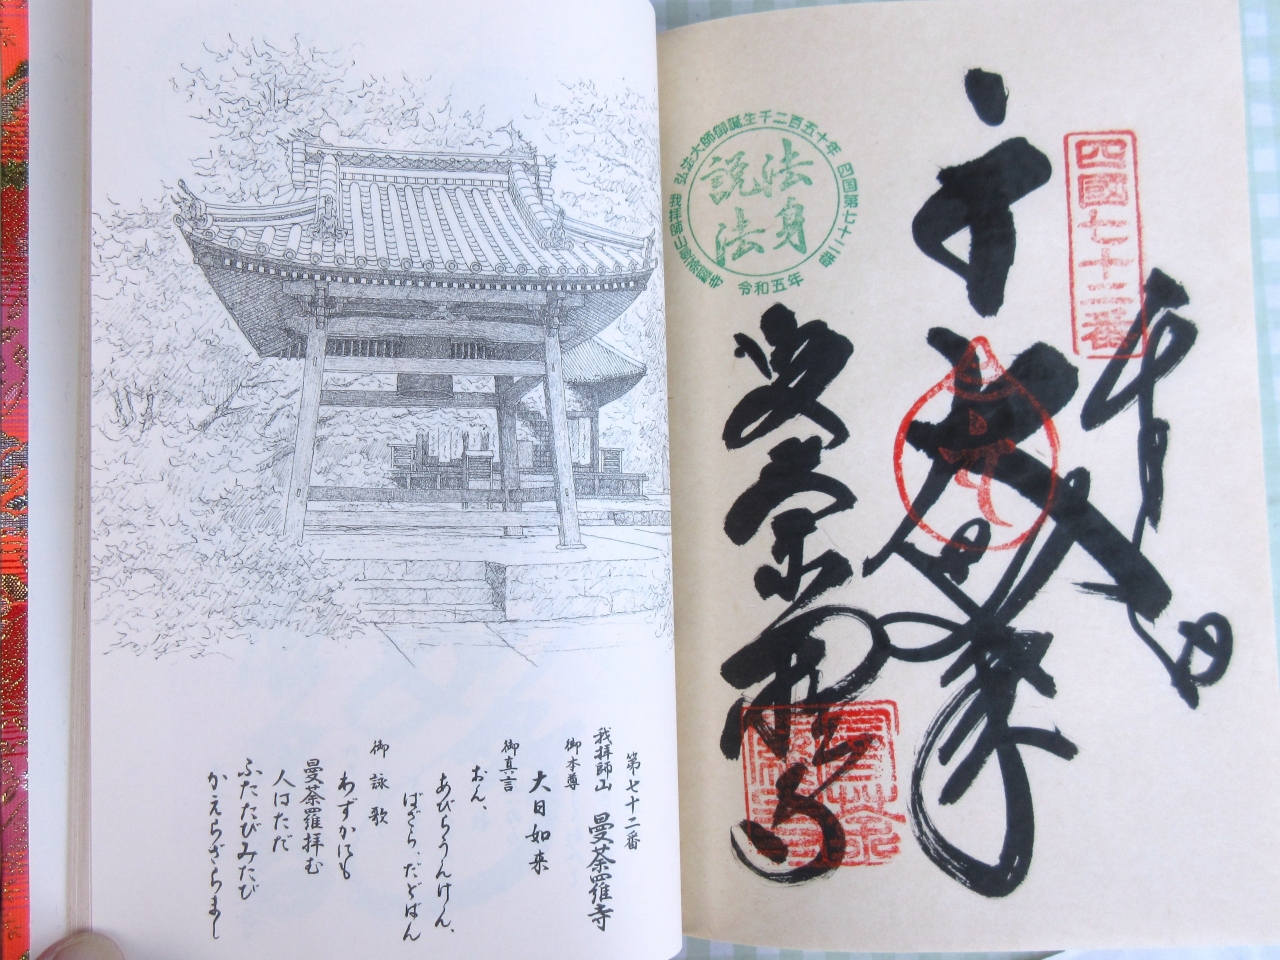 四國七十二番
奉
弘法大師御誕生千二百五十年
四国第七十二番
令和五年
我拝師山曼荼羅寺
法身
説法
曼荼羅寺
第七十二番
我拝師山 曼荼羅寺
御本尊
大日如来
御真言
おん、
あびらうんけん、
ばざら、だどばん
御詠歌
わずかにも
曼荼羅拝む
人はただ
ふたたびみたび
かえらざらまし